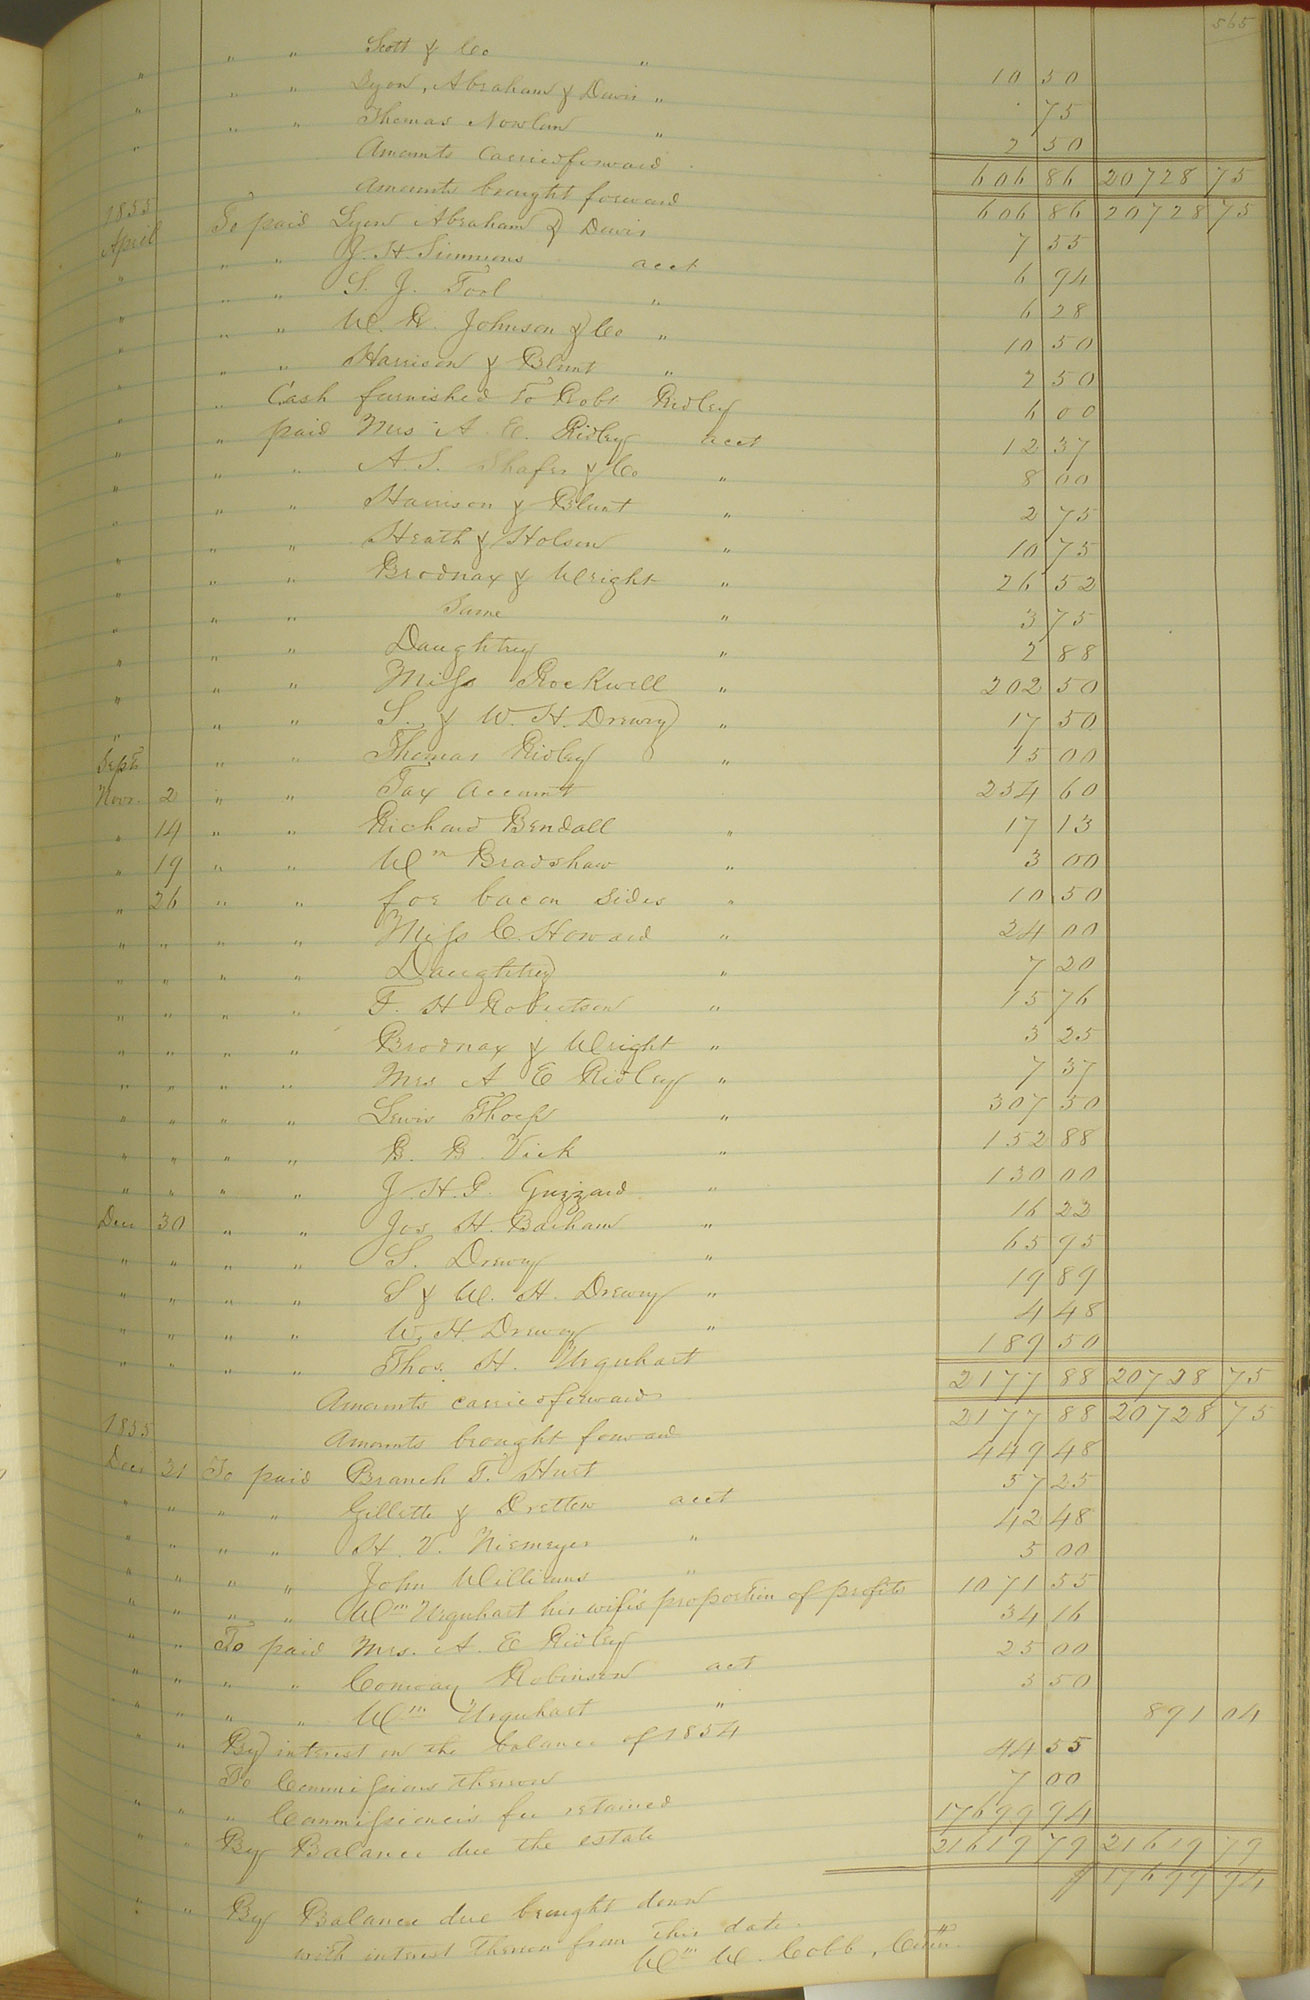 565
" " " Scott & Co " 10 50
" " " Lyon, Abraham & Davis " 75
" " " Thomas Nowlan " 2 50
Amounts carried forward 606 86 20728 75
Amounts brought forward 606 86 20728 75
1855
April To paid Lyon Abraham & Davis 7 55
" " " J. H. Simmons acct 6 94
" " " S. J. Tool " 6 28
" " " W. R. Johnson & Co " 10 50
" " " Harrison & Blunt " 2 50
" " Cash furnished to Robt Ridley 6 00
" " paid Mrs A. E. Ridley acct 12 37
" " " A. S. Shafer & Co " 8 00
" " " Harrison & Blunt " 2 75
" " " Heath & Holson " 10 75
" " " Brodnax & Wright " 26 52
" " " Same " 3 75
" " " Daughtrey " 2 88
" " " Miss Rockwell " 202 50
" " " S. & W. H. Drewry " 17 50
Sept " " Thomas Ridley " 15 00
Novr. 2 " " Tax account 254 60
" 14 " " Richard Bendall " 17 13
" 19 " " Wm Bradshaw " 3 00
" 26 " " for bacon sides " 10 50
" " " " Miss C. Howard " 24 00
" " " " Daughtrey " 7 20
" " " " T. H. Robertson " 15 76
" " " " Brodnax & Wright " 3 25
" " " " Mrs A E Ridley " 7 37
" " " " Lewis Thorp " 307 50
" " " " B. B. Vick " 152 88
" " " " J. H. G. Gizzard " 130 00
Dec 30 " " Jos H. Barham " 16 22
" " " " S. Drewry " 65 95
" " " " S & W. H. Drewry " 19 89
" " " " W. H. Drewry " 4 48
" " " " Thos. H. Urquhart 189 50
Amounts carried forward 2177 88 20728 75
1855 Amounts brought forward 2177 88 20728 75
Dec 31 To paid Branch T. Hurt 449 48
" " " " Gillette & acct 57 25
" " " " H. V. Niemeyer " 42 48
" " " " John Williams " 5 00
" " " " Wm Urquhart his wife's proportion of profits 1071 55
" " To paid Mrs. A. E Ridley 34 16
" " " " Conway Robinson act 25 00
" " " " Wm Urquhart " 3 50
" " By interest on the balance of 1854 891 04
To Commissions thereon 44 55
" " " Commissioner's fee retained 7 00
" " By Balance due the estate 17699 94
21619 79 21619 79
" " By Balance due brought down $ 17699 94
with interest thereon from this date.
Wm W. Cobb, Comr.